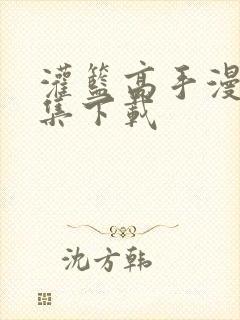 灌籃高手漫
集下載
沈方韩